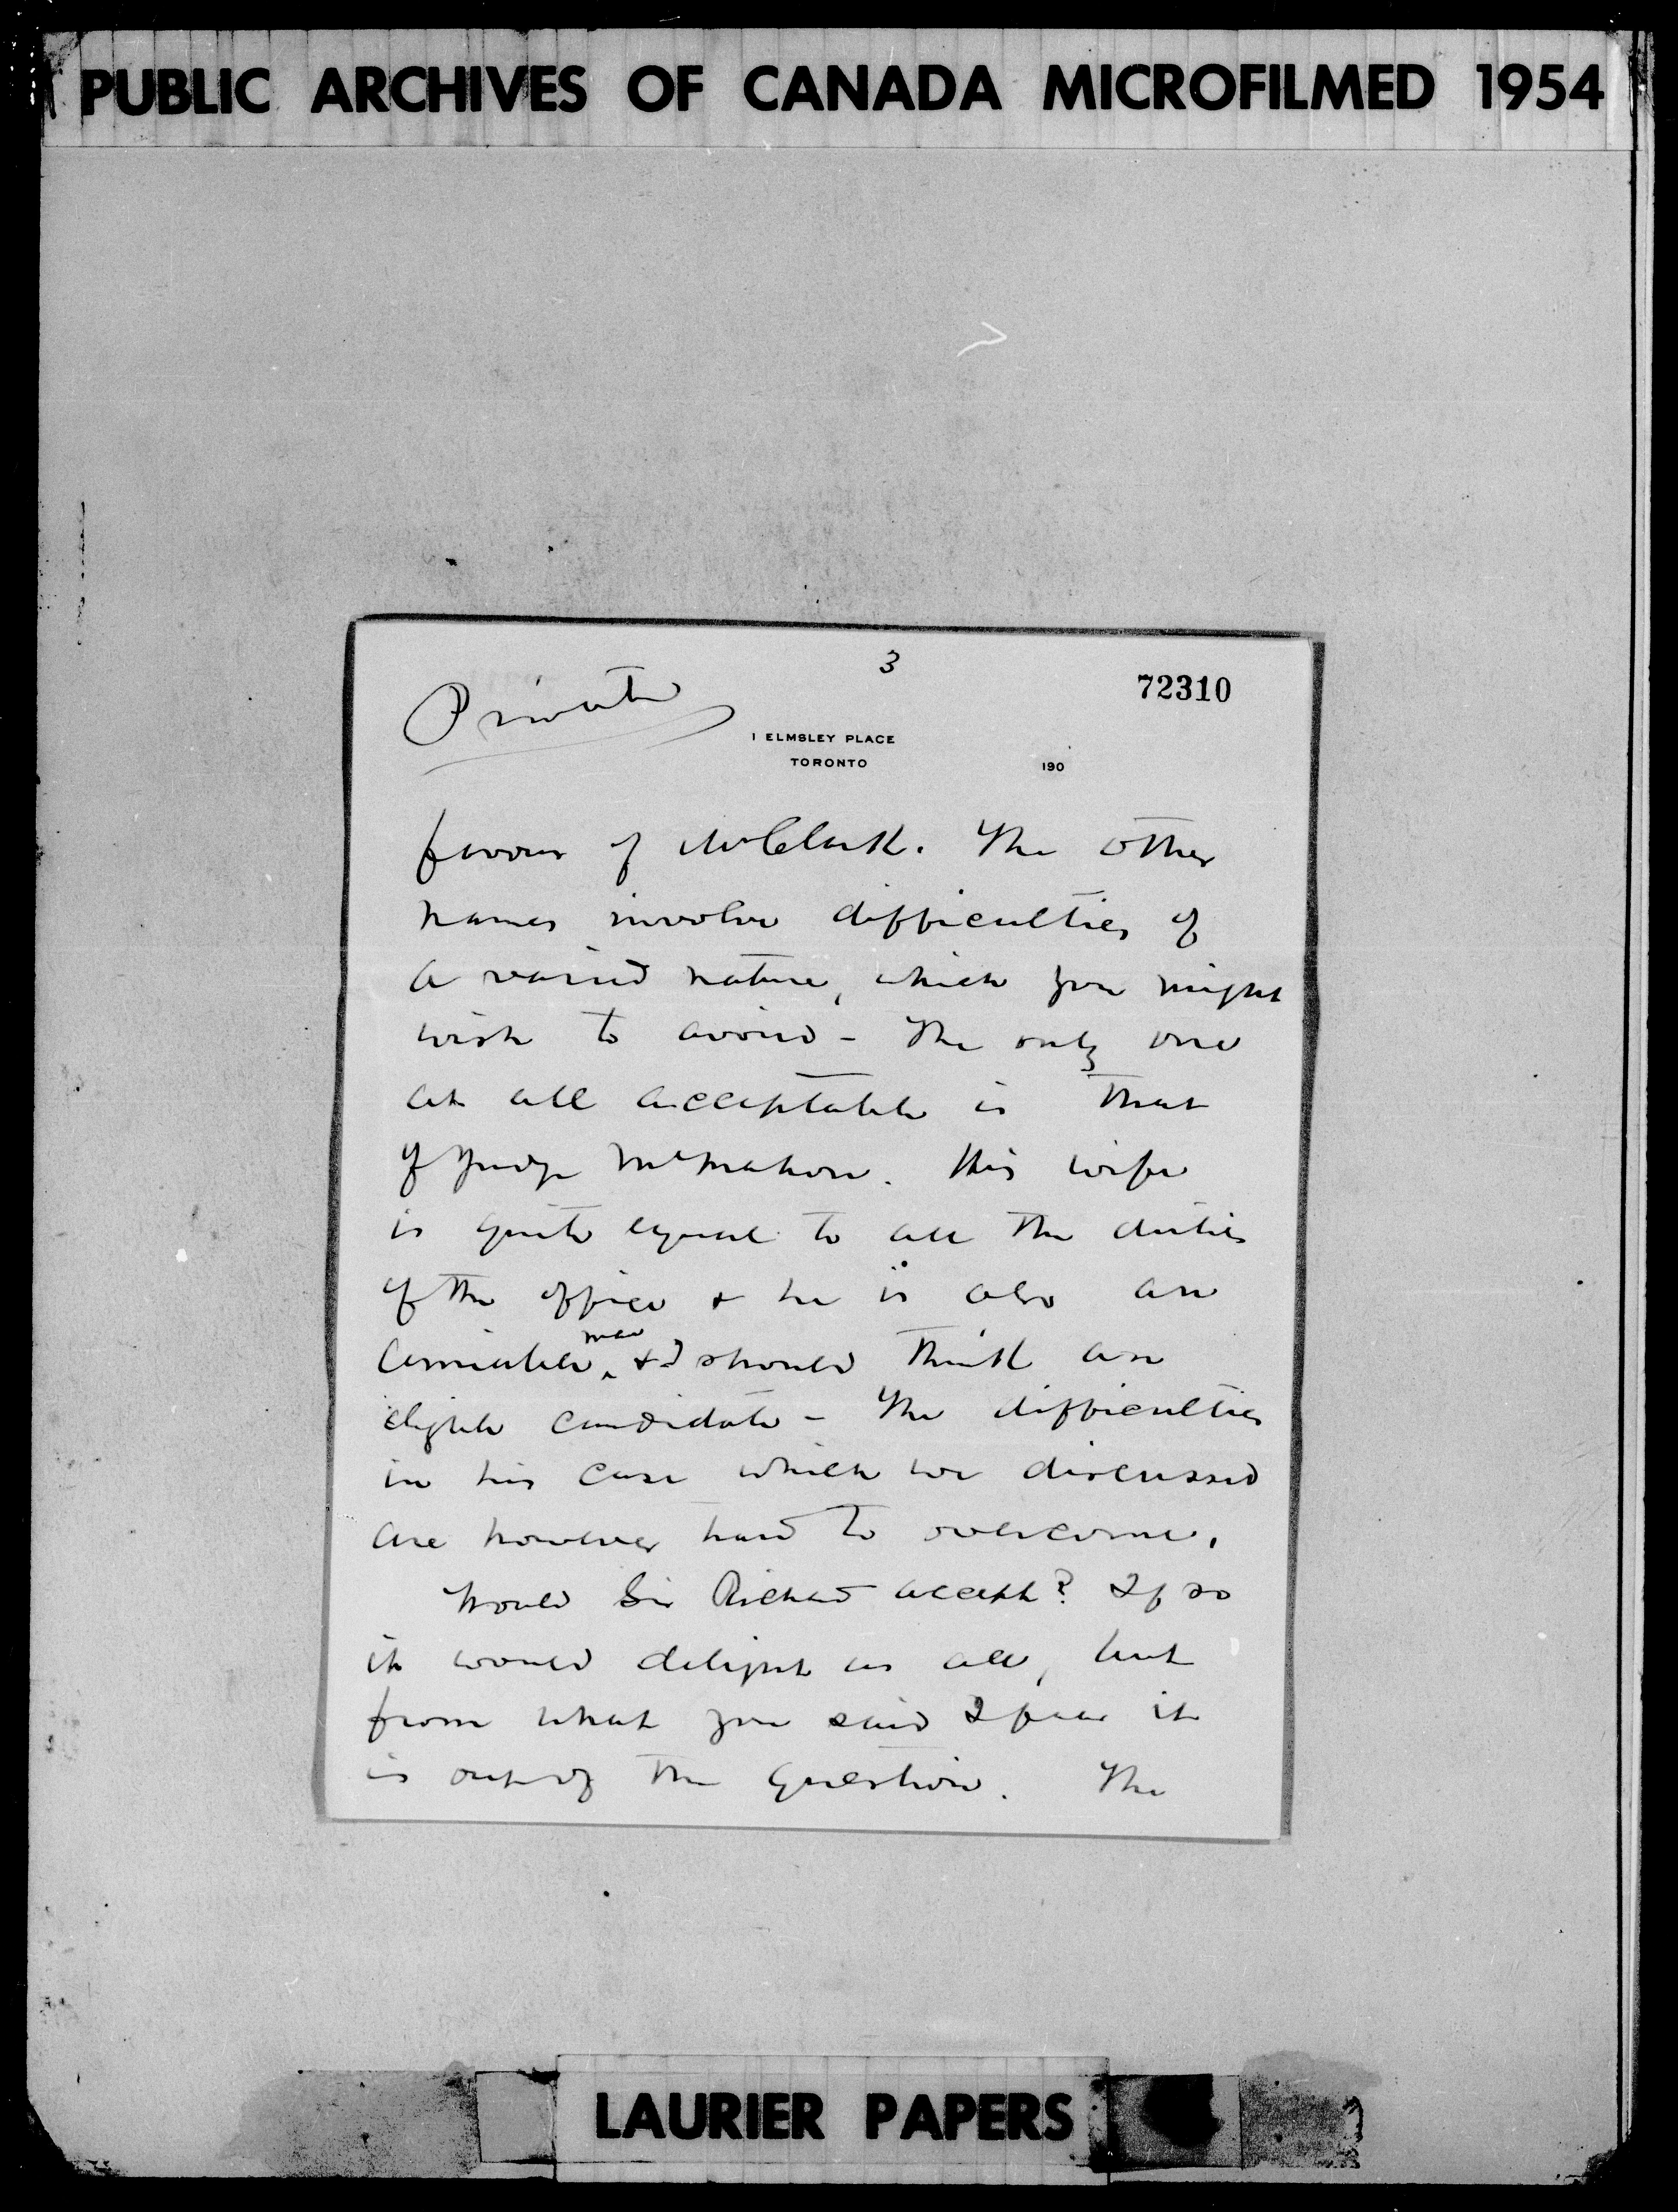 PUBLIC ARCHIVES OF CANADA MICROFILMED 1954
3
72310
Private
1 ELMSLEY PLACE
TORONTO
190
favour of Mr Clark. The other
names involve difficulties of
a varied nature, which you might
wish to avoid - The only one
at all acceptable is that
of Judge McMahon. His wife
is quite equal to all the duties
of the office & he is also an
amiable man & I should think an
eligible candidate - The difficulties
in his case which we discussed
are however hard to overcome.
Would Sir Richard accept? If so
it would delight us all, but
from what you said I fear it
is out of the question. The
LAURIER PAPERS